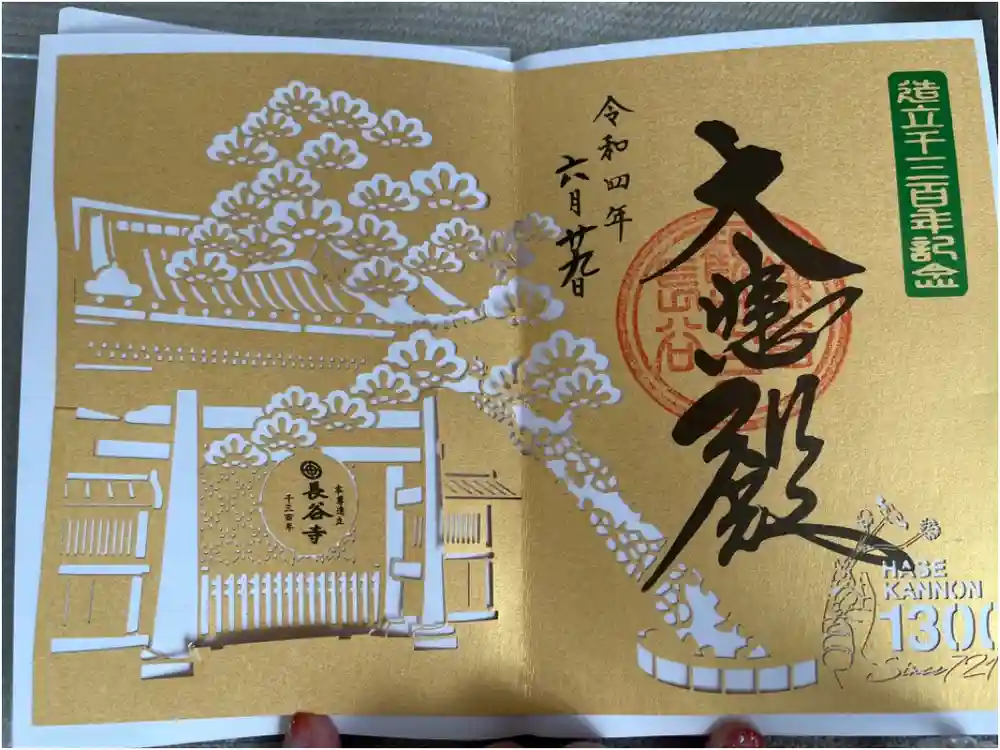 造立千三百年記念
大悲殿
令和四年
六月廿九日
本尊造立
長谷寺
千三百年
HASE
KANNON
1300
Since 721